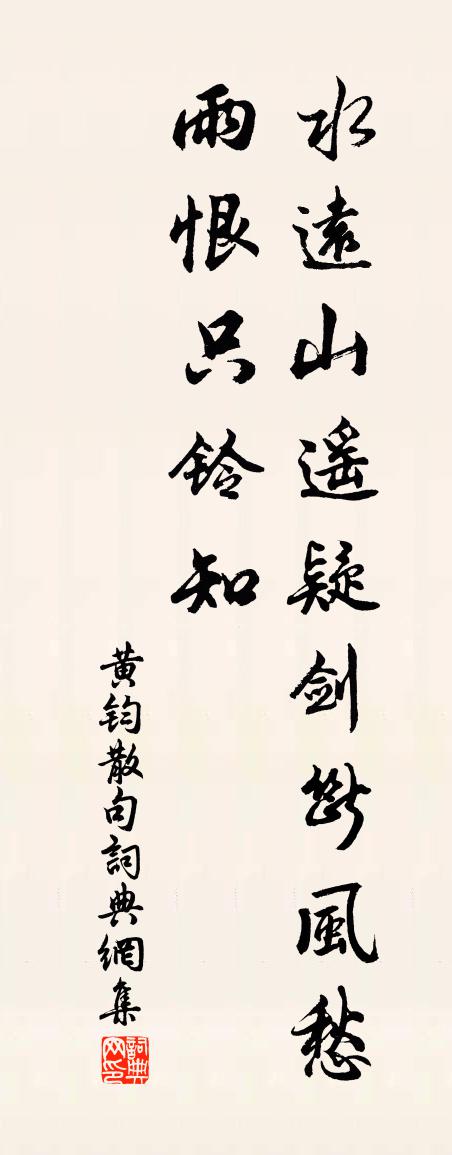 水遠山遥疑剑斷風愁
雨恨只鈴知
黄鈞散句詞典網集
詞典网印